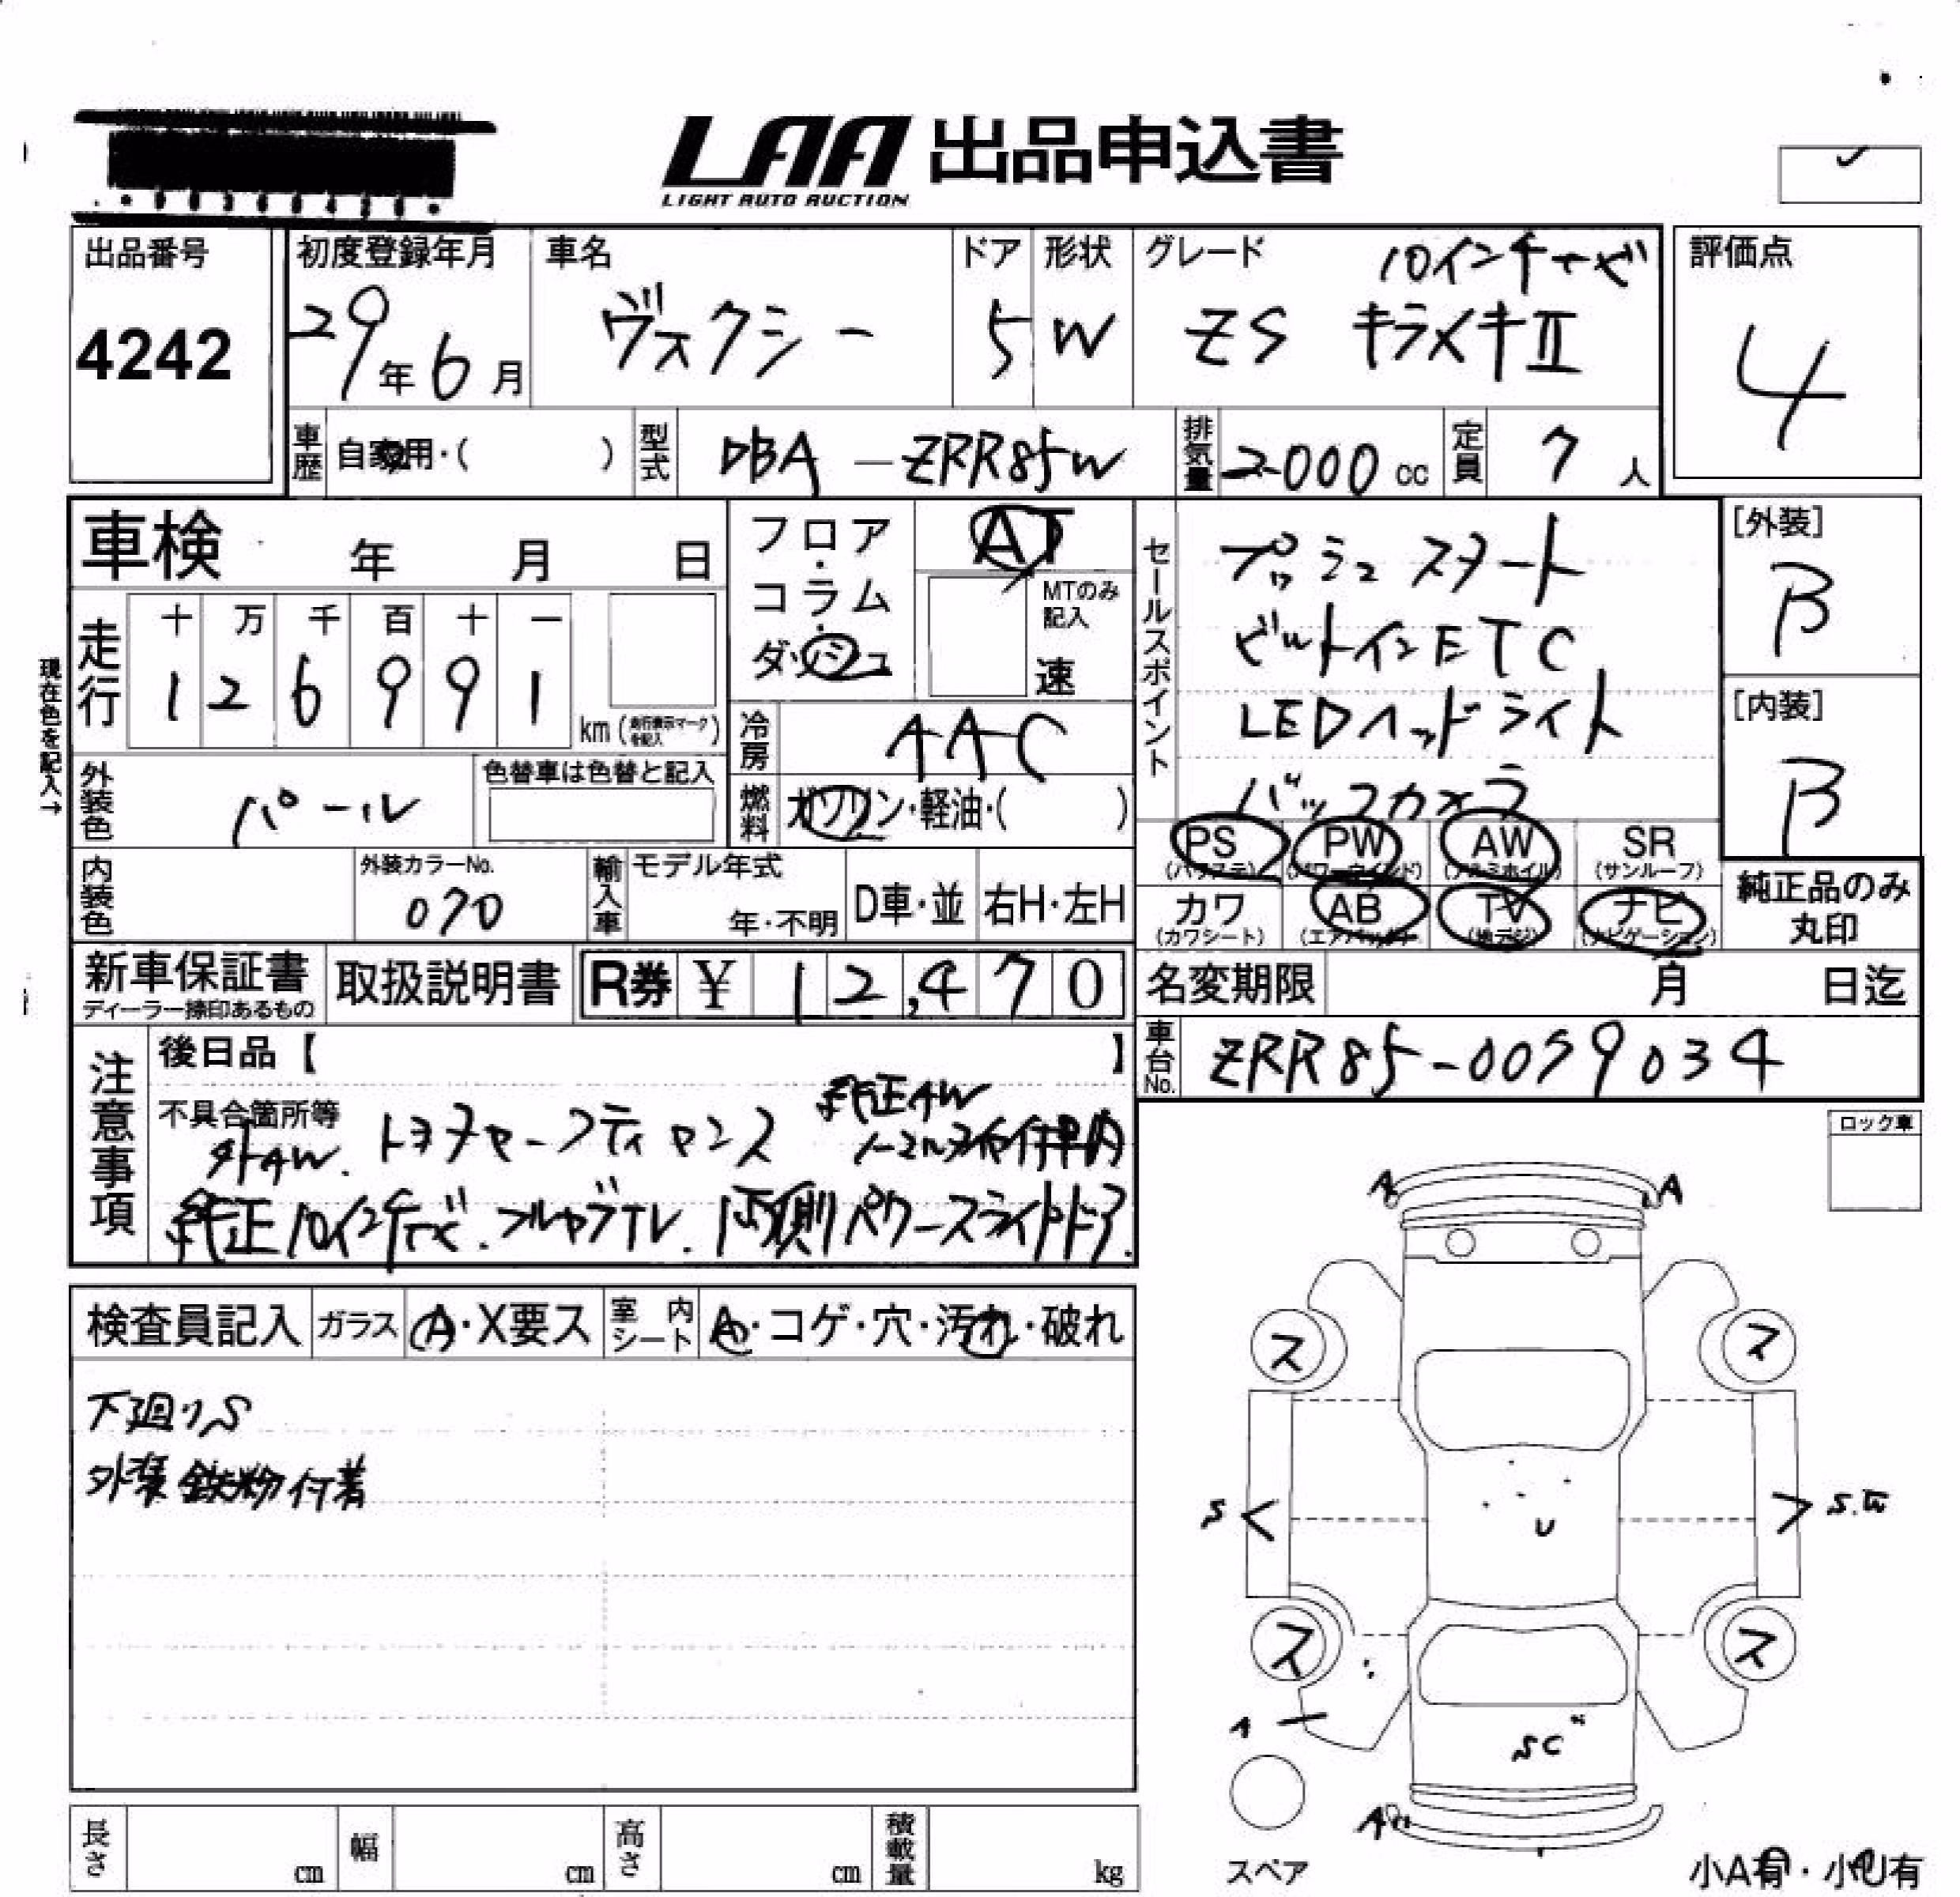 LAA 出品申込書
LIGHT AUTO AUCTION
出品番号
4242
初度登録年月
29年6月
車名
ヴォクシー
ドア
5
形状
W
グレード
10インチナビ
ZS キラメキⅡ
評価点
4
車歴
自家用・( )
型式
DBA-ZRR85W
排気量
2000cc
定員
7人
車検 年 月 日
走行
十 万 千 百 十 一
1 2 6 9 9 1
km(走行表示マークを記入)
現在色を記入→
フロア・コラム・ダッシュ
AT
MTのみ記入
速
冷房
AAC
燃料
ガソリン・軽油・( )
外装色
パール
色替車は色替と記入
内装色
外装カラーNo.
070
輸入車
モデル年式
年・不明
D車・並
右H・左H
セールスポイント
プッシュスタート
ビルトインETC
LEDヘッドライト
バックカメラ
[外装]
B
[内装]
B
PS
(パワステ)
PW
(パワーウインド)
AW
(アルミホイル)
SR
(サンルーフ)
カワ
(カワシート)
AB
(エアバック)
TV
(地デジ)
ナビ
(ナビゲーション)
純正品のみ
丸印
新車保証書
ディーラー捺印あるもの
取扱説明書
R券 ¥ 12,470
名変期限 月 日迄
車台No.
ZRR85-0079034
注意事項
後日品【 】
不具合箇所等
外AW. トヨタセーフティセンス
純正AW
ノーマルタイヤ付車内
純正10インチナビ.フルセグTV.両側パワースライドドア.
ロック車
検査員記入
ガラス
A・X要ス
室内シート
A・コゲ・穴・汚れ・破れ
下廻りS
外装鉄粉付着
A A
ス ス
S S.W
U
ス ス
A
SC
A
スペア
長さ cm
幅 cm
高さ cm
積載量 kg
小A有・小U有